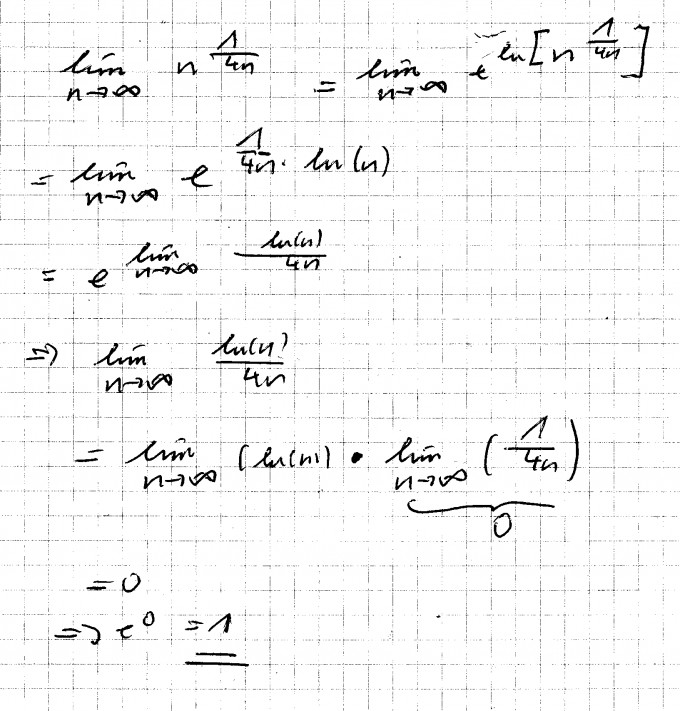 lim n→∞ n^(1/4n) = lim n→∞ e^(ln[n^(1/4n)])
= lim n→∞ e^(1/4n · ln(n))
= e^(lim n→∞ ln(n)/4n)
⇒ lim n→∞ ln(n)/4n
= lim n→∞ (ln(n)) • lim n→∞ (1/4n)
0
= 0
⇒ e^0 = 1